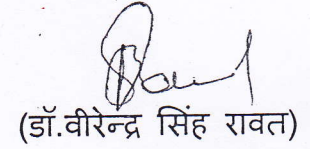 (डॉ.वीरेन्द्र सिंह रावत)